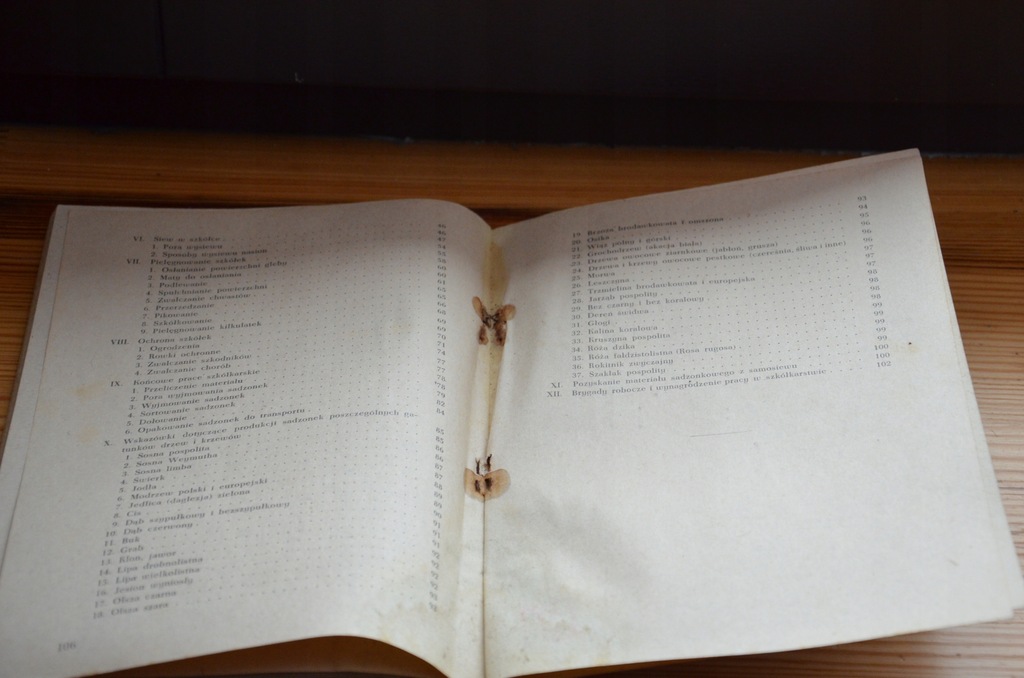 VI. Siew w szkółce . 46
1. Pora wysiewu 46
2. Sposoby wysiewu nasion 47
VII. Pielęgnowanie szkółek 54
1. Osłanianie powierzchni gleby 58
2. Maty do osłaniania 60
3. Podlewanie 60
4. Spulchnianie powierzchni 61
5. Zwalczanie chwastów 65
6. Przerzedzanie 65
7. Pikowanie 66
8. Szkółkowanie 68
9. Pielęgnowanie kilkulatek 69
VIII. Ochrona szkółek 69
1. Ogrodzenia 70
2. Rowki ochronne 71
3. Zwalczanie szkodników 74
4. Zwalczanie chorób 74
IX. Końcowe prace szkółkarskie 77
1. Przeliczenie materiału 77
2. Pora wyjmowania sadzonek 78
3. Wyjmowanie sadzonek 78
4. Sortowanie sadzonek 79
5. Dołowanie 82
6. Opakowanie sadzonek do transportu 84
X. Wskazówki dotyczące produkcji sadzonek poszczególnych ga-
tunków drzew i krzewów 85
1. Sosna pospolita 85
2. Sosna Weymutha 86
3. Sosna limba 86
4. Świerk 87
5. Jodła 87
6. Modrzew polski i europejski 88
7. Jedlica (daglezja) zielona 89
8. Cis 89
9. Dąb szypułkowy i bezszypułkowy 90
10. Dąb czerwony 91
11. Buk 91
12. Grab 91
13. Klon, jawor 92
14. Lipa drobnolistna 92
15. Lipa wielkolistna 92
16. Jesion wyniosły 92
17. Olsza czarna
18. Olsza szara
106
19. Brzoza brodawkowata i omszona 93
20. Osika 94
21. Wiąz polny i górski 95
22. Grochodrzew (akacja biała) 96
23. Drzewa owocowe ziarnkowe (jabłoń, grusza) 96
24. Drzewa i krzewy owocowe pestkowe (czereśnia, śliwa i inne) 96
25. Morwa 97
26. Leszczyna 97
27. Trzmielina brodawkowata i europejska 97
28. Jarząb pospolity 98
29. Bez czarny i bez koralowy 98
30. Dereń świdwa 98
31. Głogi 99
32. Kalina koralowa 99
33. Kruszyna pospolita 99
34. Róża dzika 99
35. Róża fałdzistolistna (Rosa rugosa) 99
36. Rokitnik zwyczajny 100
37. Szakłak pospolity 100
XI. Pozyskanie materiału sadzonkowego z samosiewu 100
XII. Brygady robocze i wynagrodzenie pracy w szkółkarstwie 102